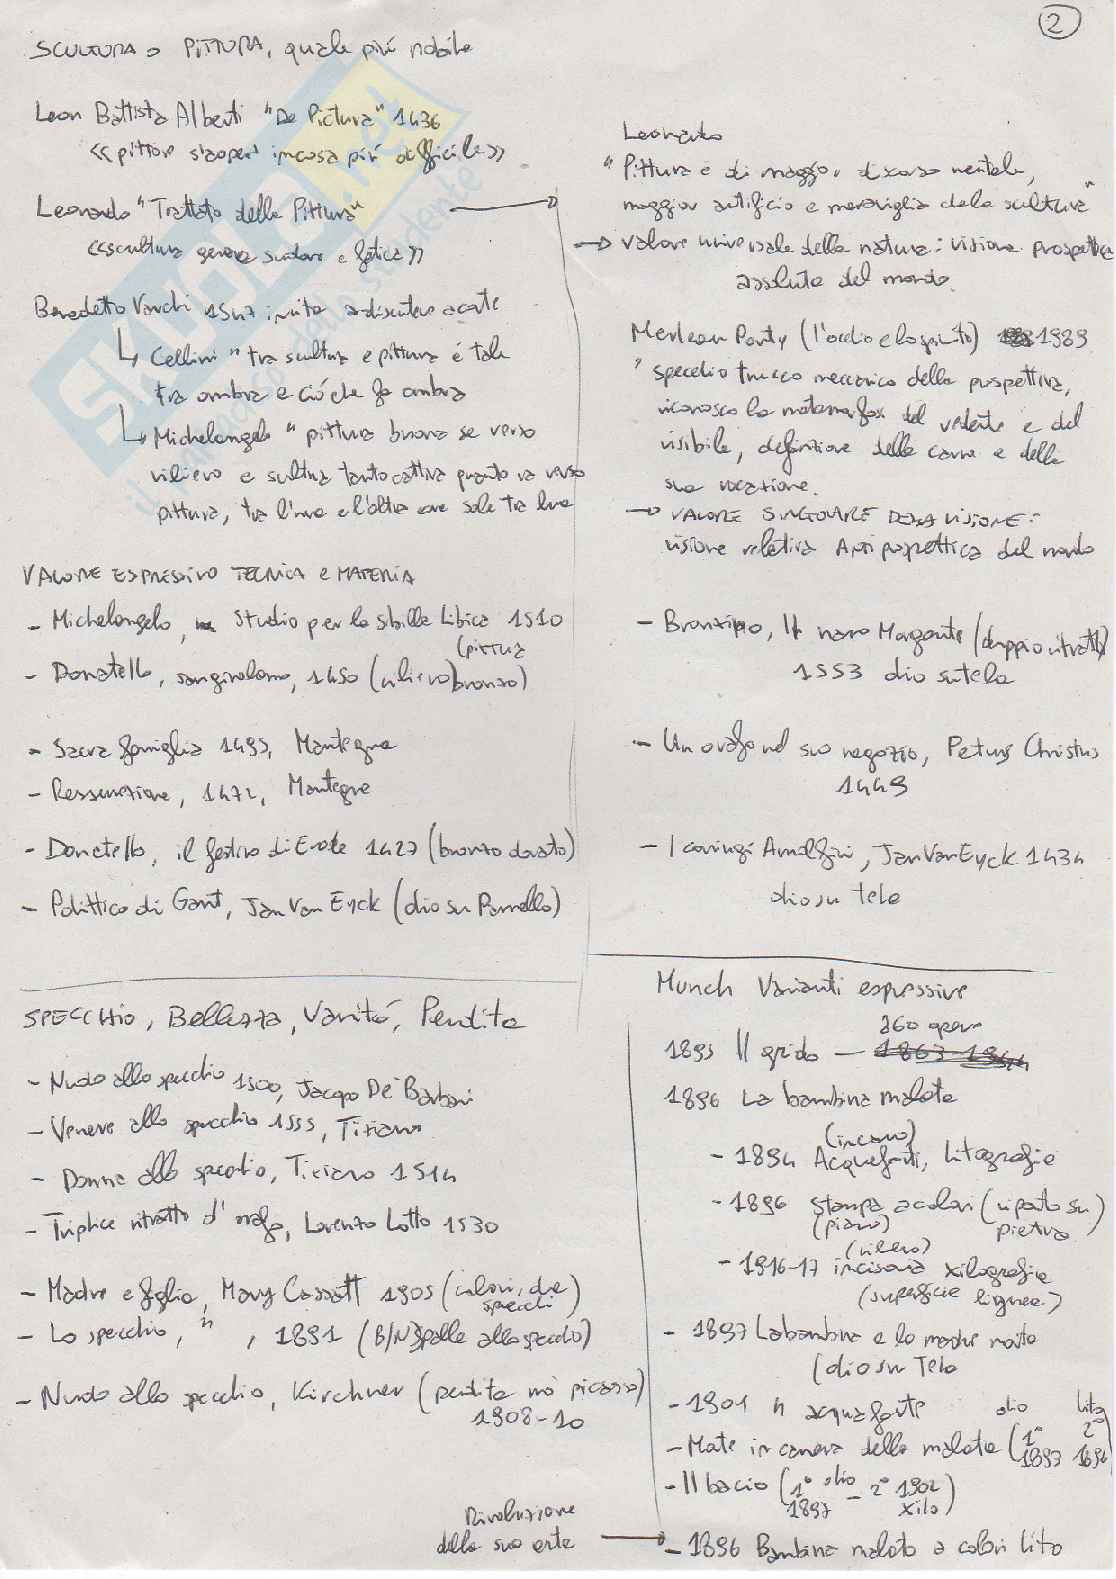 2
SCULTURA o PITTURA, quale più nobile
Leon Battista Alberti "De Pictura" 1436
<<pittore s'adoperi in cosa più difficile>>
Leonardo "Trattato della Pittura"
<<scultura genera sudore e fatica>>
Benedetto Varchi 1547 invita a discutere a corte
Cellini "tra scultura e pittura è tale
tra ombra e ciò che fa ombra
Michelangelo "pittura buona se verso
rilievo e scultura tanto cattiva quanto va verso
pittura, tra l'una e l'altra sole tra luna
VALORE ESPRESSIVO TECNICA e MATERIA
- Michelangelo, Studio per la Sibilla Libica 1510
(pittura
- Donatello, san girolamo, 1450 (rilievo) bronzo)
- Sacra famiglia 1495, Mantegna
- Resurrezione, 1472, Mantegna
- Donatello, il festino di Erode 1427 (bronzo dorato)
- Polittico di Gant, Jan Van Eyck (olio su Pannello)
Leonardo
"Pittura è di maggior discorso mentale,
maggior artificio e meraviglia della scultura"
→ valore universale della natura: visione prospettica
assoluta del mondo.
Merleau Ponty (l'occhio e lo spirito) 1989
"specchio trucco meccanico della prospettiva,
riconosco la metamorfosi del vedente e del
visibile, definizione della carne e della
sua vocazione.
→ VALORE SINGOLARE DELLA VISIONE:
visione relativa Antiprospettica del mondo
- Bronzino, Il nano Morgante (doppio ritratto)
1553 olio su tela
- Un orafo nel suo negozio, Petrus Christus
1449
- I coniugi Arnolfini, Jan Van Eyck 1434
olio su tela
SPECCHIO, Bellezza, Vanità, Perdita
- Nudo allo specchio 1500, Jacopo De' Barbari
- Venere allo specchio 1555, Tiziano
- Donna allo specchio, Tiziano 1514
- Triplice ritratto d'orafo, Lorenzo Lotto 1530
- Madre e figlia, Mary Cassatt 1905 (colori, due
specchi)
- Lo specchio, " , 1891 (B/N spalle allo specchio)
- Nudo allo specchio, Kirchner (perdita mo' picasso)
1908-10
Rivoluzione
della sua arte
Munch Varianti espressive
260 opere
1895 Il grido —
1896 La bambina malata
(incavo)
- 1894 Acqueforti, litografie
- 1896 Stampa a colori (riporto su)
(piano) pietra
(rilievo)
- 1916-17 incisioni xilografie
(superficie lignea.)
- 1897 La bambina e la madre morta
(olio su Tela
- 1901 " acquaforte
olio lito
- Morte in camera della malata (1° 2°
1893 1896
- Il bacio (1° olio – 2° 1902)
1897 xilo
- 1896 Bambina malata a colori lito